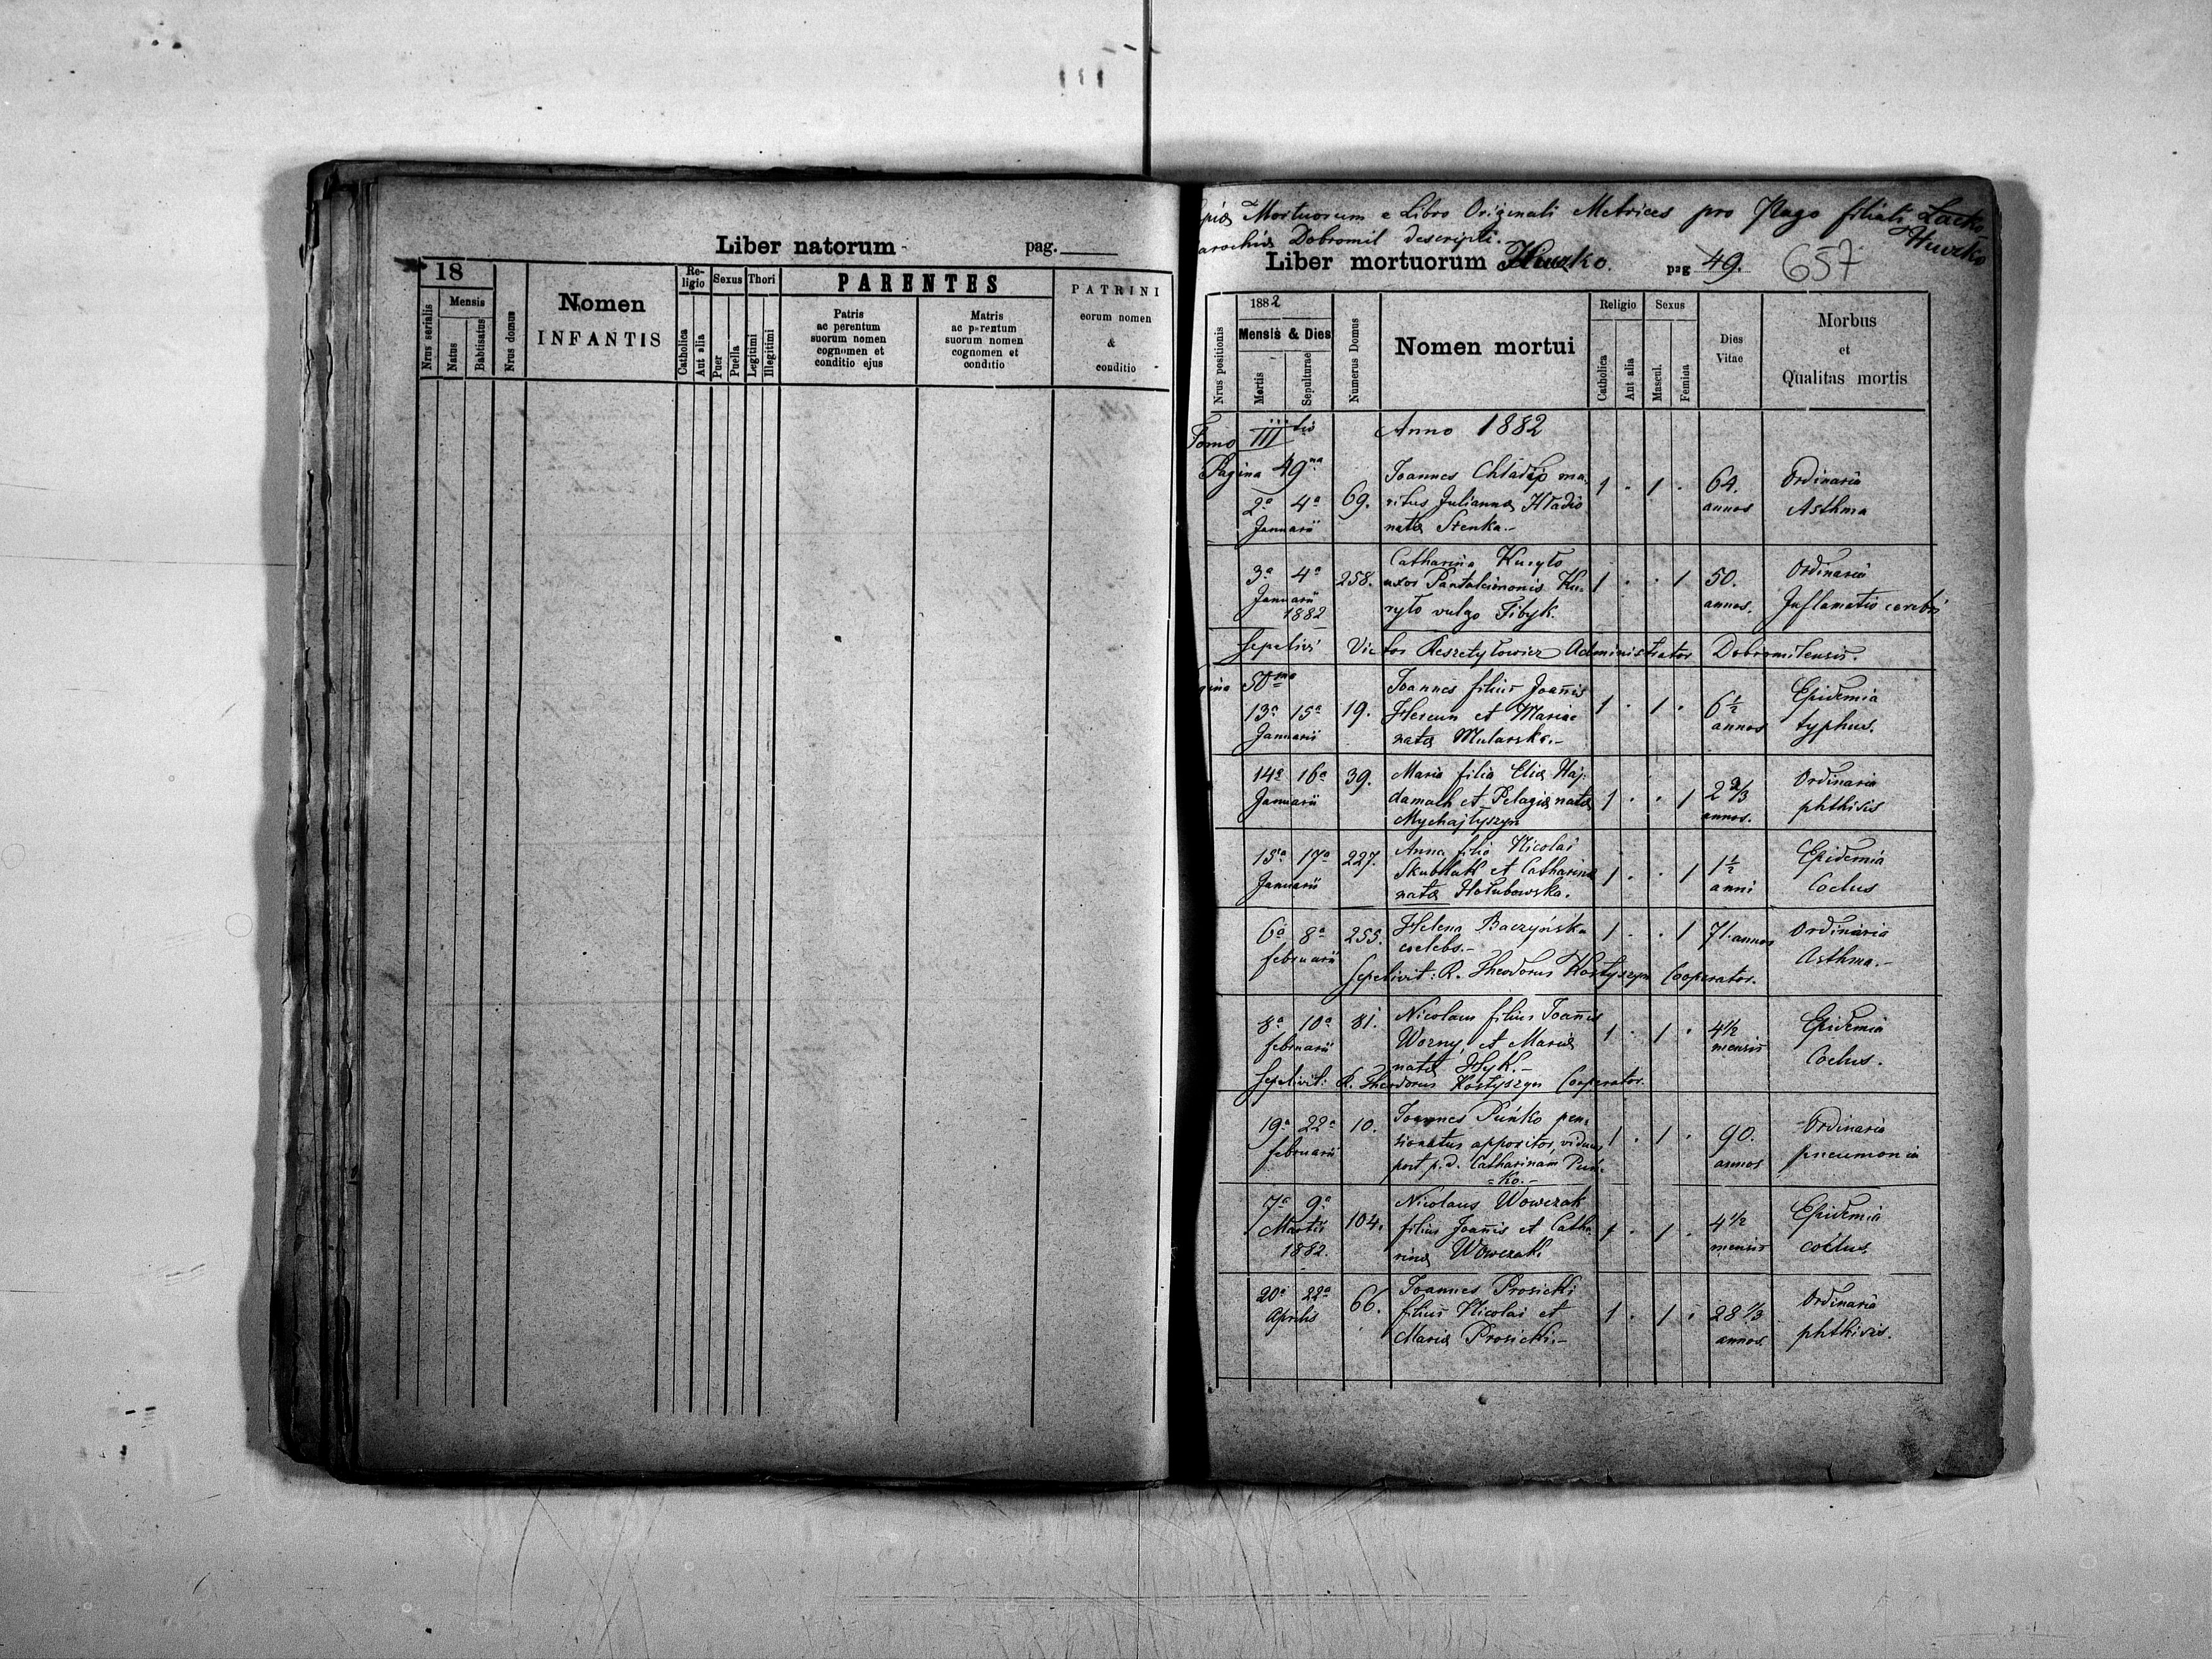 Liber natorum pag.
18
Nrus serialis
Mensis
Natus
Babtisatus
Nrus domus
Nomen
INFANTIS
Re-
ligio
Catholica
Aut alia
Sexus
Puer
Puella
Thori
Legitimi
Illegitimi
PARENTES
Patris
ac perentum
suorum nomen
cognomen et
conditio ejus
Matris
ac parentum
suorum nomen
cognomen et
conditio
PATRINI
eorum nomen
&
conditio
Mortuorum e Libro Originali Metrices pro Pago filiali Lacko
Dobromil descripti.- Huczko
Liber mortuorum Huczko. pag 49. 657
Nrus positionis
1882
Mensis & Dies
Mortis
Sepulturae
Numerus Domus
Nomen mortui
Religio
Catholica
Aut alia
Sexus
Mascul.
Femina
Dies
Vitae
Morbus
et
Qualitas mortis
Tomo III tio Anno 1882
Pagina 49na
2a 4a Januarii 69.
Joannes Chladio ma-
ritus Julianna Hladio
nata Stenka.-
1 . 1 . 64. annos
Ordinaria
Asthma
3a 4a Januarii 1882 258.
Catharina Kuryło
uxor Pantaleimonis Ku-
ryło vulgo Fibyk.
1 . . 1 50. annos.
Ordinaria
Inflamatio cerebri
Sepelivi Victor Reszetyłowicz Administrator Dobromilensis.
50ma
13a 15a Januarii 19.
Joannes filius Joannis
Hereun et Mariae
nata Mularska.-
1 . 1 . 6½ annos
Epidemia
typhus.
14a 16a Januarii 39.
Maria filia Elia Haj-
damach et Pelagia nata
Mychajłyszyn
1 . . 1 2 2/3 annos.
Ordinaria
phthisis
15a 17a Januarii 227.
Anna filia Nicolai
Skubhak et Catharina
nata Hołubowska.
1 . . 1 1½ anni
Epidemia
Coclus
6a 8a februarii 255.
Helena Baczyńska
coelebs.-
1 . . 1 71. annos
Ordinaria
Asthma.-
Sepelivit: R. Theodorus Kostyszyn Cooperator.
8a 10a februarii 81.
Nicolaus filius Joannis
Worny, et Maria
nata Hyk.-
1 . 1 . 4½ mensis
Epidemia
Coclus.
Sepelivit: R. Theodorus Kostyszyn Cooperator.
19a 22a februarii 10.
Joannes Puńko pen-
sionatus appositor, viduus
post p.d. Catharinam Puń-
=ko.-
1 . 1 . 90. annos
Ordinaria
pneumonia
7a 9a Martii 1882. 104.
Nicolaus Wowczak
filius Joannis et Catha-
rina Wowczak
1 . 1 . 4½ mensis
Epidemia
coclus.
20a 22a Aprilis 66.
Joannes Prosicki
filius Nicolai et
Maria Prosicki.-
1 . 1 . 28 1/3 annos.
Ordinaria
phthisis.